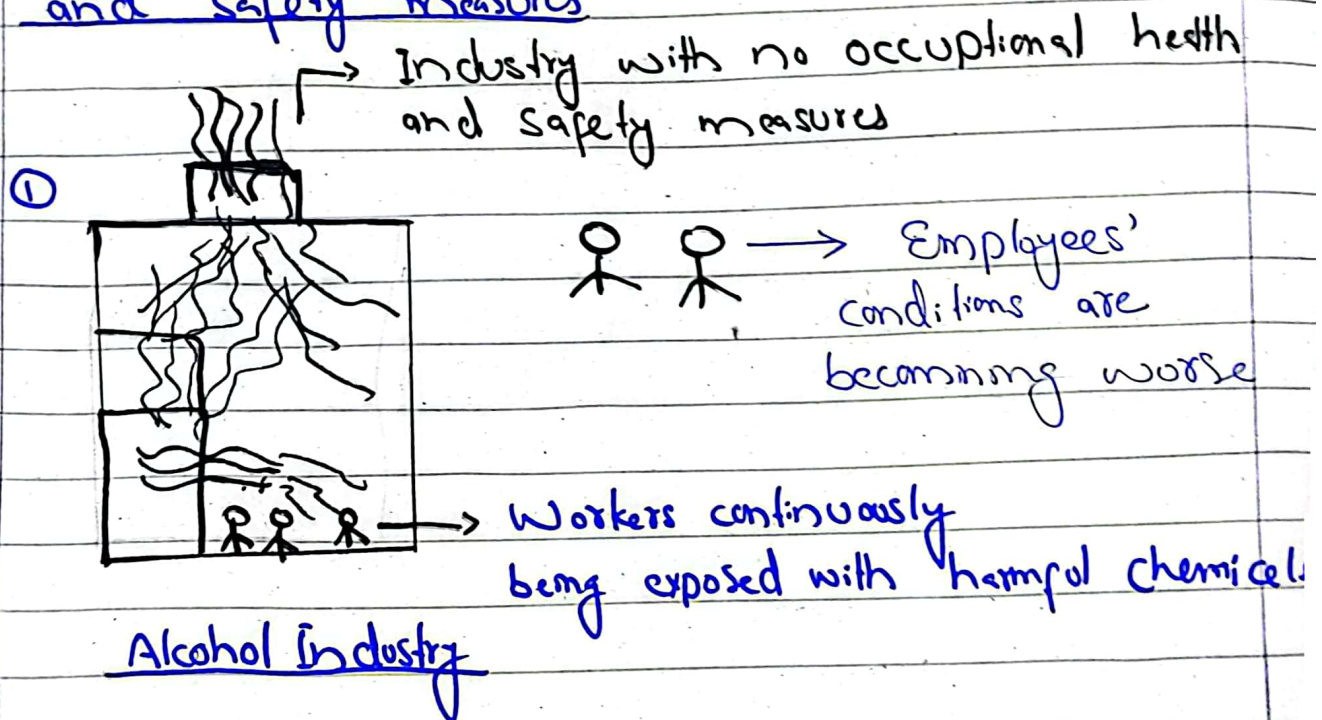 and safety measures
Industry with no occuptional health
and safety measures
①
Employees'
conditions are
becomning worse
Workers continuously
being exposed with harmful chemicels
Alcohol Industry